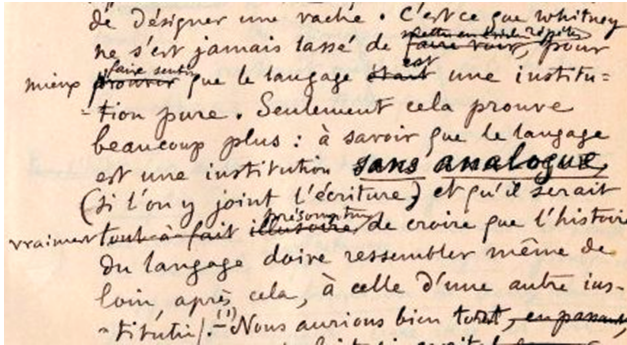 de désigner une vache. C'est ce que Whitney
ne s'est jamais lassé de faire voir, pour
mieux faire sentir prouver que le langage était est une institu=
=tion pure. Seulement cela prouve
beaucoup plus : à savoir que le langage
est une institution sans analogue,
(si l'on y joint l'écriture) et qu'il serait
vraiment tout-à-fait présomptueux illusoire de croire que l'histoire
du langage doive ressembler même de
loin, après cela, à celle d'une autre ins-
-titution.(1) - Nous aurions bien tort, en passant,